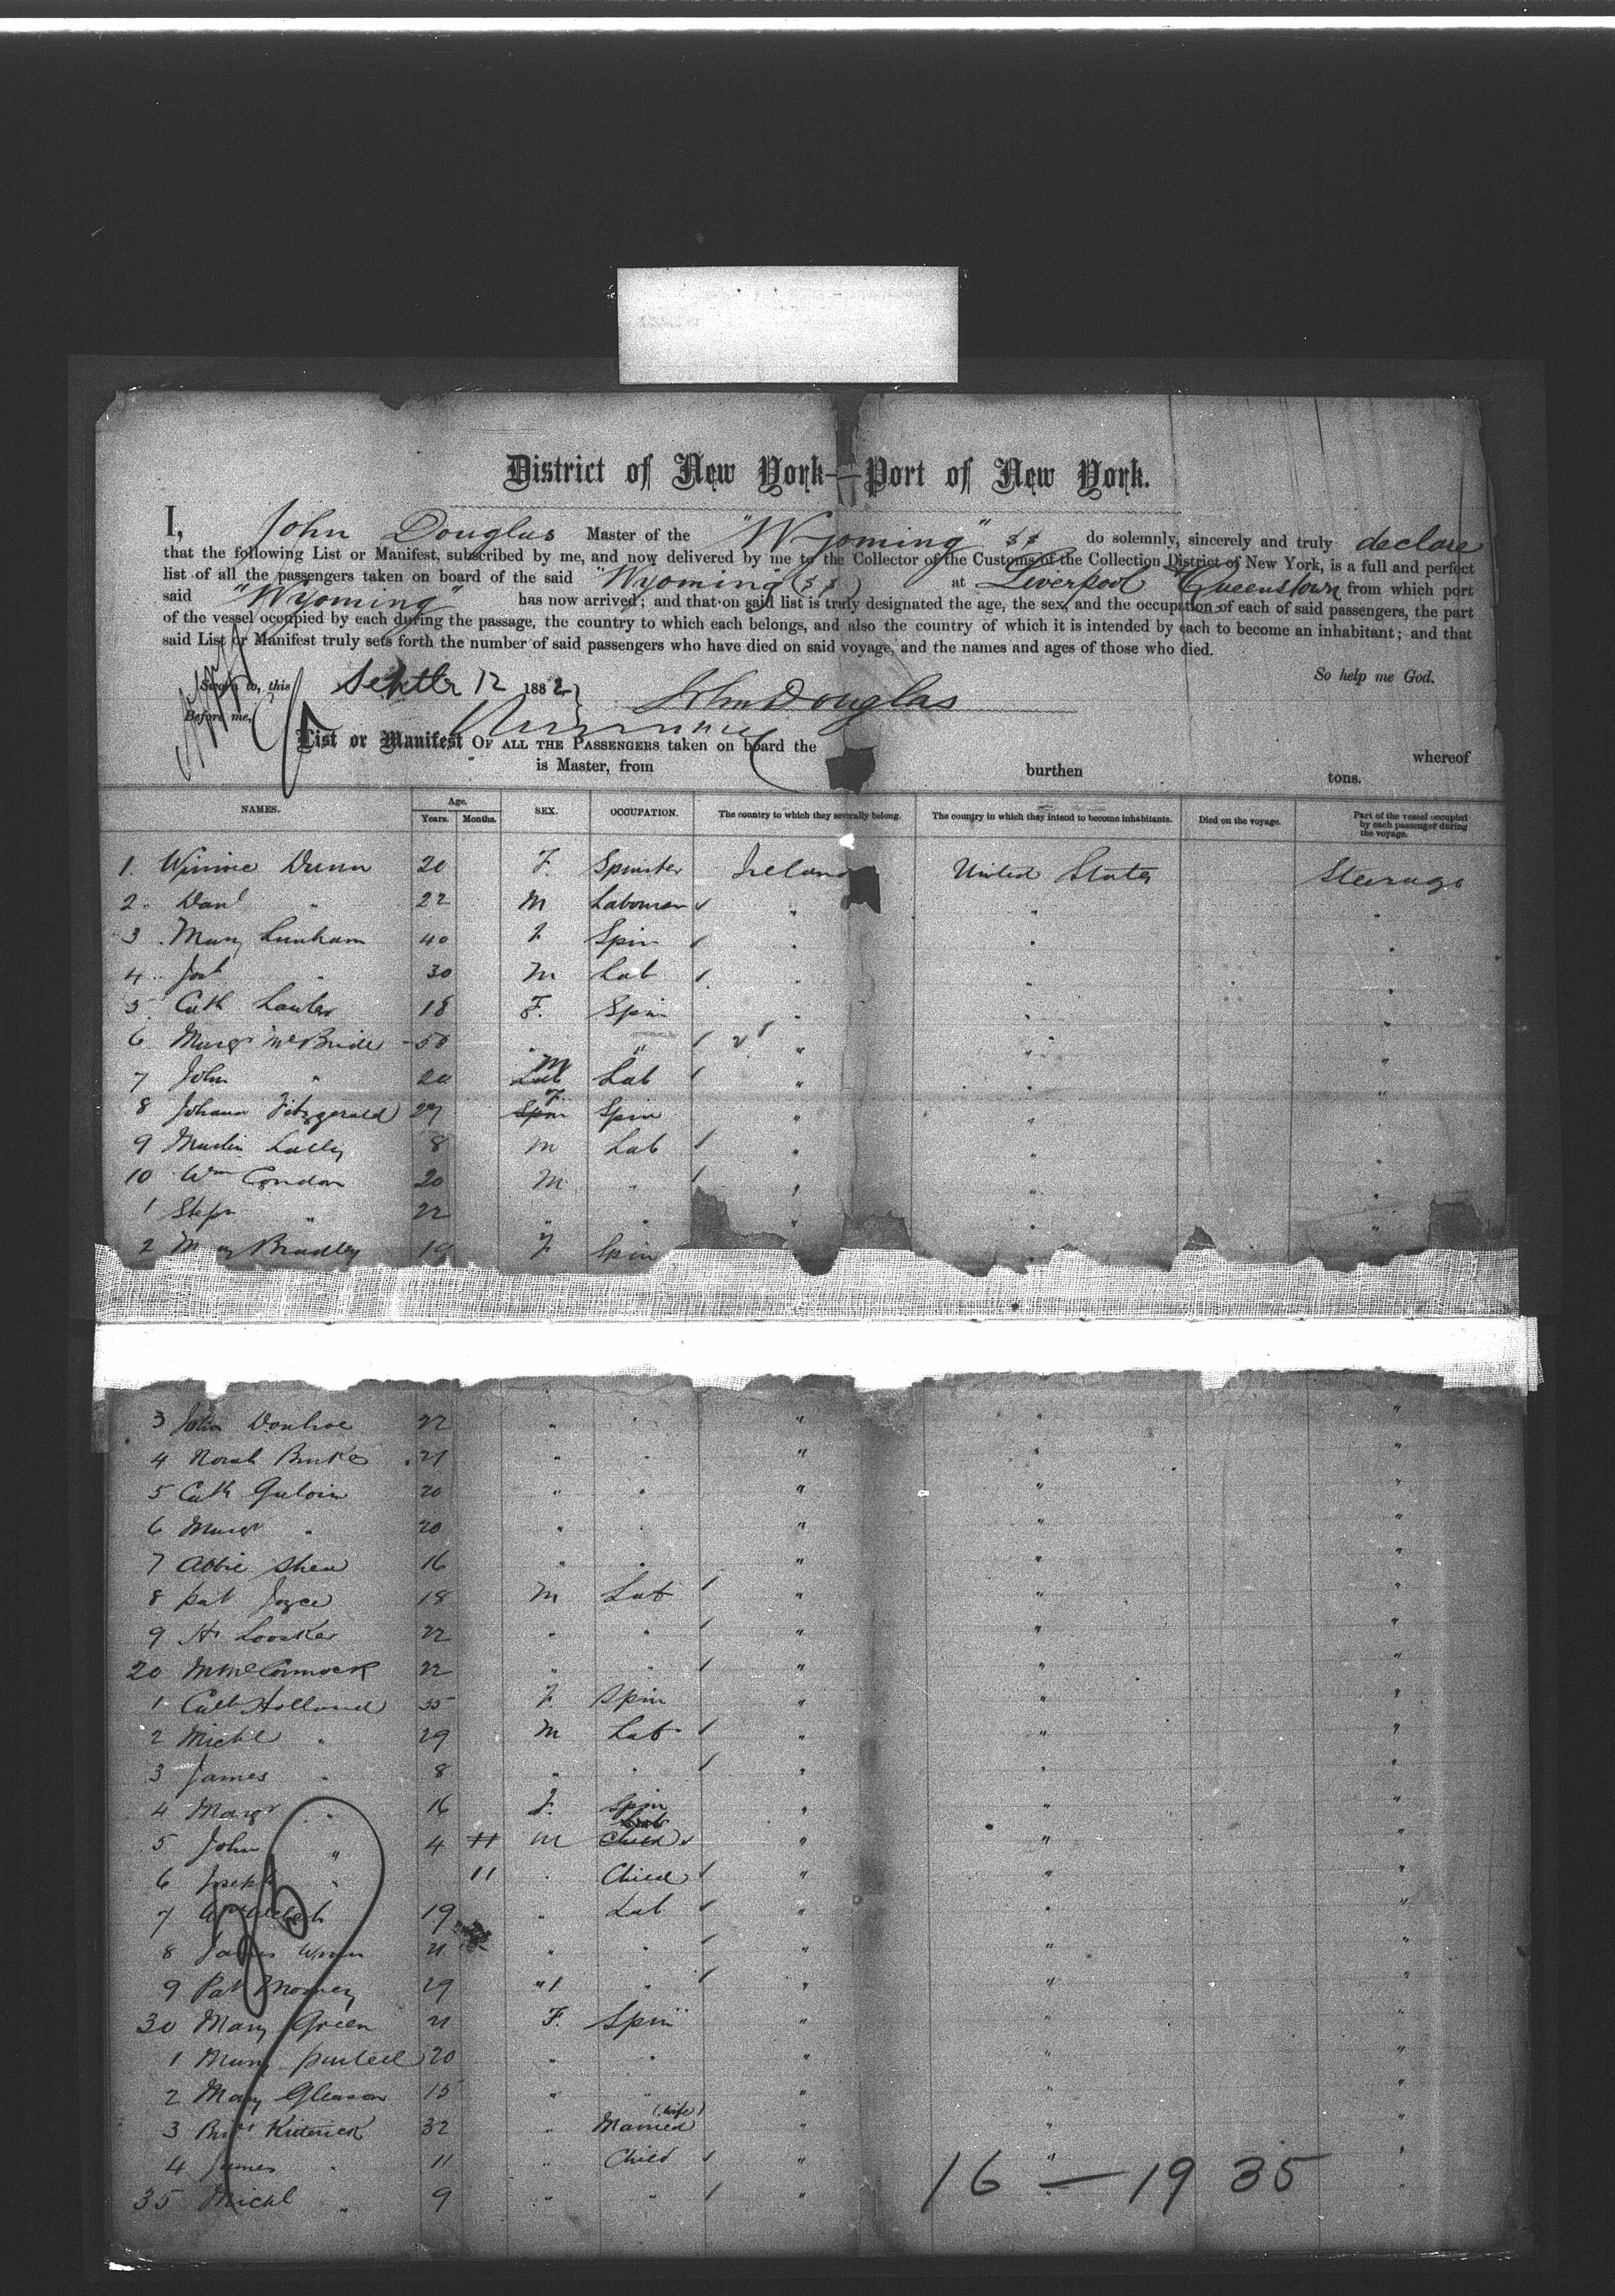 District of New York—Port of New York.
I, John Douglas Master of the "Wyoming" SS do solemnly, sincerely and truly declare
that the following List or Manifest, subscribed by me, and now delivered by me to the Collector of the Customs of the Collection District of New York, is a full and perfect
list of all the passengers taken on board of the said "Wyoming" (SS) at Liverpool & Queenstown from which port
said "Wyoming" has now arrived; and that on said list is truly designated the age, the sex, and the occupation of each of said passengers, the part
of the vessel occupied by each during the passage, the country to which each belongs, and also the country of which it is intended by each to become an inhabitant; and that
said List or Manifest truly sets forth the number of said passengers who have died on said voyage, and the names and ages of those who died.
So help me God.
Sworn to, this Septbr 12 1882 John Douglas
Before me,
List or Manifest OF ALL THE PASSENGERS taken on board the whereof
is Master, from burthen tons.
NAMES. Age. Years. Months. SEX. OCCUPATION. The country to which they severally belong. The country in which they intend to become inhabitants. Died on the voyage. Part of the vessel occupied by each passenger during the voyage.
1. Winnie Dunn 20 F. Spinster Ireland United States Steerage
2. Danl " 22 M Labourer " " "
3. Mary Lunham 40 F Spin " " "
4. " 30 M Lab " " "
5. Cath Lawler 18 F. Spin " " "
6 Margt McBride 50 " " " " "
7 John " 20 M Lab " " "
8 Johana Fitzgerald 27 F Spin " " "
9 Martin Lally 8 M Lab " " "
10 Wm Condon 20 M " " " "
1 Stepn " 22 " " " " "
2 Mary Bradley 19 F Spin
3 Julia Donhoe 22 " " " " "
4 Norah Burke 21 " " " " "
5 Cath 20 " " " " "
6 Margt " 20 " " " " "
7 Abbie Shea 16 " " " " "
8 Pat Joyce 18 M Lab " " "
9 22 " " " " "
20 M McCormack 22 " " " " "
1 Cath Holland 35 F Spin " " "
2 Michl " 29 M Lab " " "
3 James " 8 " " " " "
4 Margt " 16 F. Spin " " "
5 John " 4 11 M Child " " "
6 Joseph " 11 " Child " " "
7 19 " Lab " " "
8 James 21 " " " " "
9 Pat Mooney 29 " " " " "
30 Mary Green 21 F. Spin " " "
1 Mary Purtell 20 " " " " "
2 Mary Gleason 15 " " " " "
3 Kitterick 32 " Married (wife) " " "
4 James " 11 " Child " " "
35 Michl " 9 " " " " "
16 — 19 35